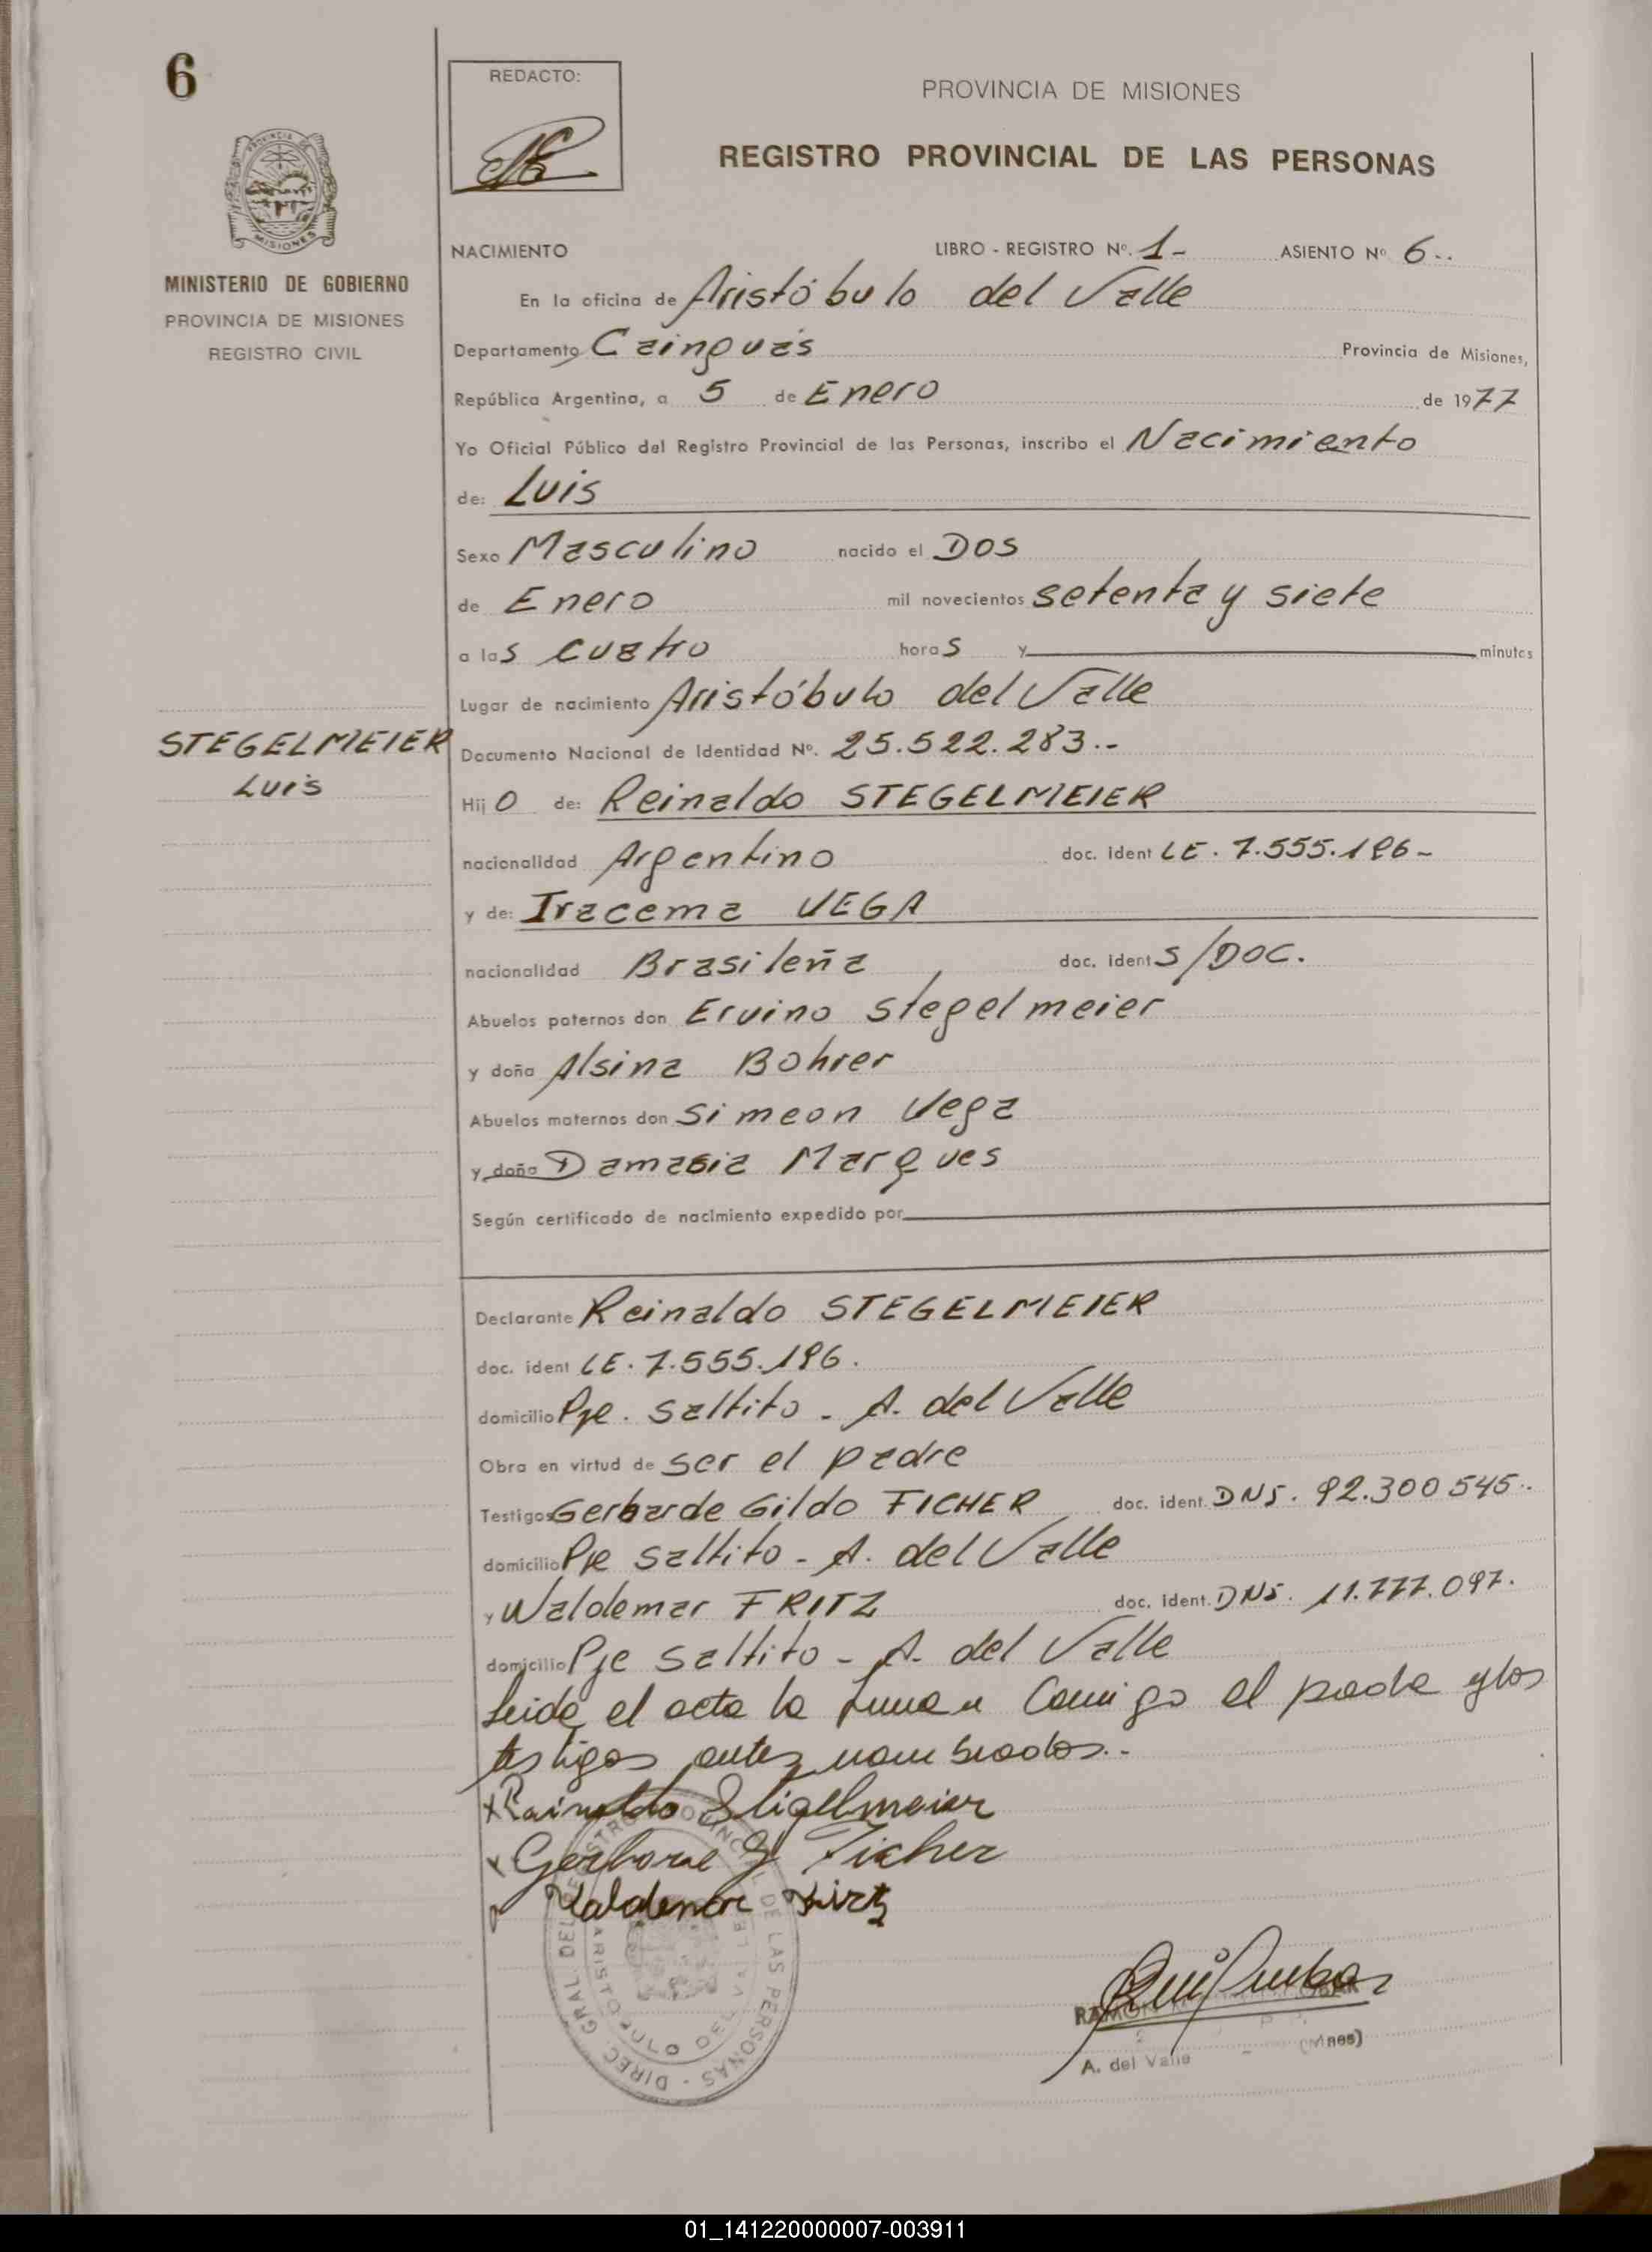 6
REDACTO:
PROVINCIA DE MISIONES
REGISTRO PROVINCIAL DE LAS PERSONAS
MINISTERIO DE GOBIERNO
PROVINCIA DE MISIONES
REGISTRO CIVIL
NACIMIENTO LIBRO - REGISTRO Nº. 1- ASIENTO Nº 6..
En la oficina de Aristóbulo del Valle
Departamento Cainguás Provincia de Misiones,
República Argentina, a 5 de Enero de 1977
Yo Oficial Público del Registro Provincial de las Personas, inscribo el Nacimiento
de: Luis
Sexo Masculino nacido el Dos
de Enero mil novecientos setenta y siete
a las cuatro horas y minutos
Lugar de nacimiento Aristóbulo del Valle
STEGELMEIER
Luis
Documento Nacional de Identidad Nº. 25.522.283.-
Hijo de: Reinaldo STEGELMEIER
nacionalidad Argentino doc. ident LE. 7.555.196-
y de: Iracema VEGA
nacionalidad Brasileña doc. ident S/DOC.
Abuelos paternos don Ervino Stegelmeier
y doña Alsina Bohrer
Abuelos maternos don Simeon Vega
y doña Damasia Marques
Según certificado de nacimiento expedido por
Declarante Reinaldo STEGELMEIER
doc. ident LE. 7.555.196.
domicilio Pje. Saltito - A. del Valle
Obra en virtud de ser el padre
Testigos Gerharde Gildo FICHER doc. ident. DNI. 92.300545..
domicilio Pje Saltito - A. del Valle
y Waldemar FRITZ doc. ident. DNI. 11.777.097.
domicilio Pje Saltito - A. del Valle
Leida el acta la firman Conmigo el padre y los
testigos antes nombrados..
x Rainoldo Stigelmeier
x Gerharde G Ficher
Valdemar Firtz
DIREC. GRAL. DEL REGISTRO PROVINCIAL DE LAS PERSONAS
ARISTOBULO DEL VALLE
RAMON
A. del Valle (Mnes)
01_141220000007-003911